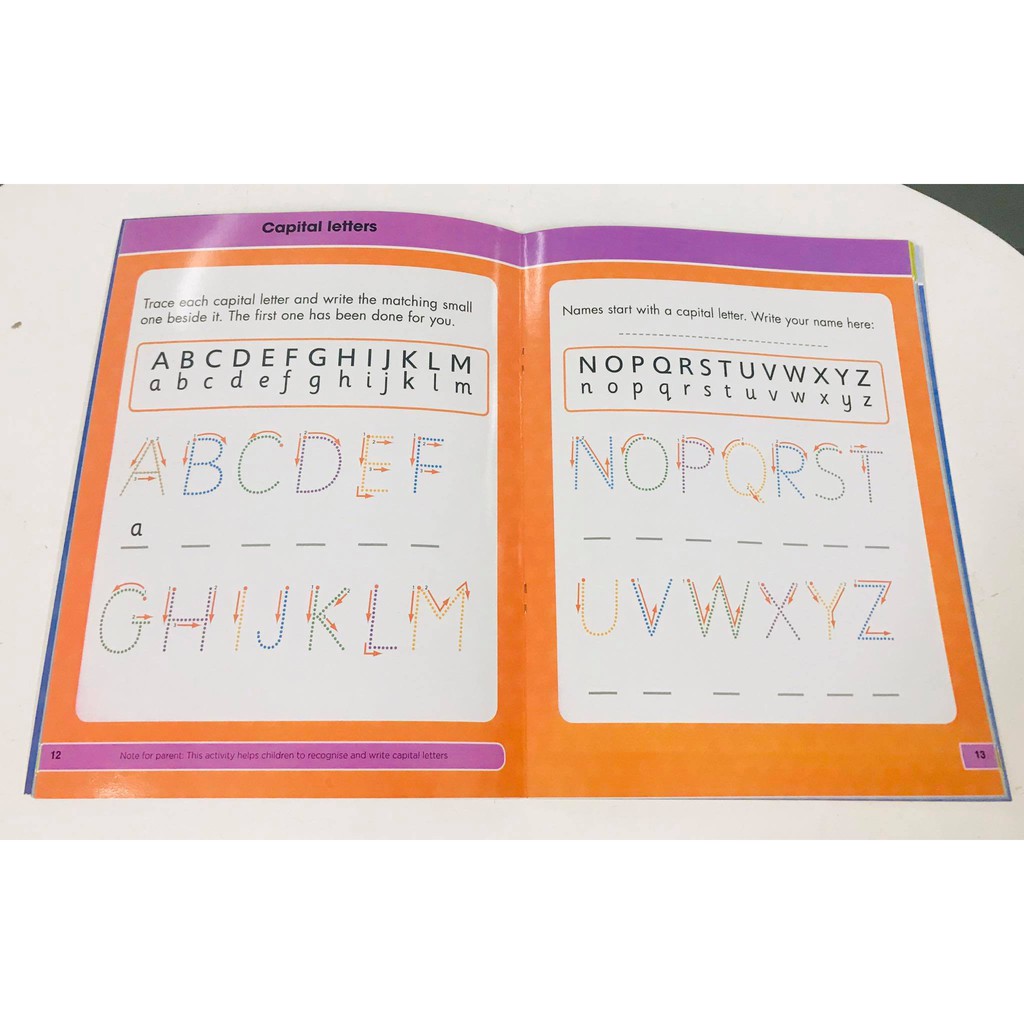 Capital letters
Trace each capital letter and write the matching small
one beside it. The first one has been done for you.
A B C D E F G H I J K L M
a b c d e f g h i j k l m
A B C D E F
a
G H I J K L M
12
Note for parent: This activity helps children to recognise and write capital letters
Names start with a capital letter. Write your name here:
N O P Q R S T U V W X Y Z
n o p q r s t u v w x y z
N O P Q R S T
U V W X Y Z
13